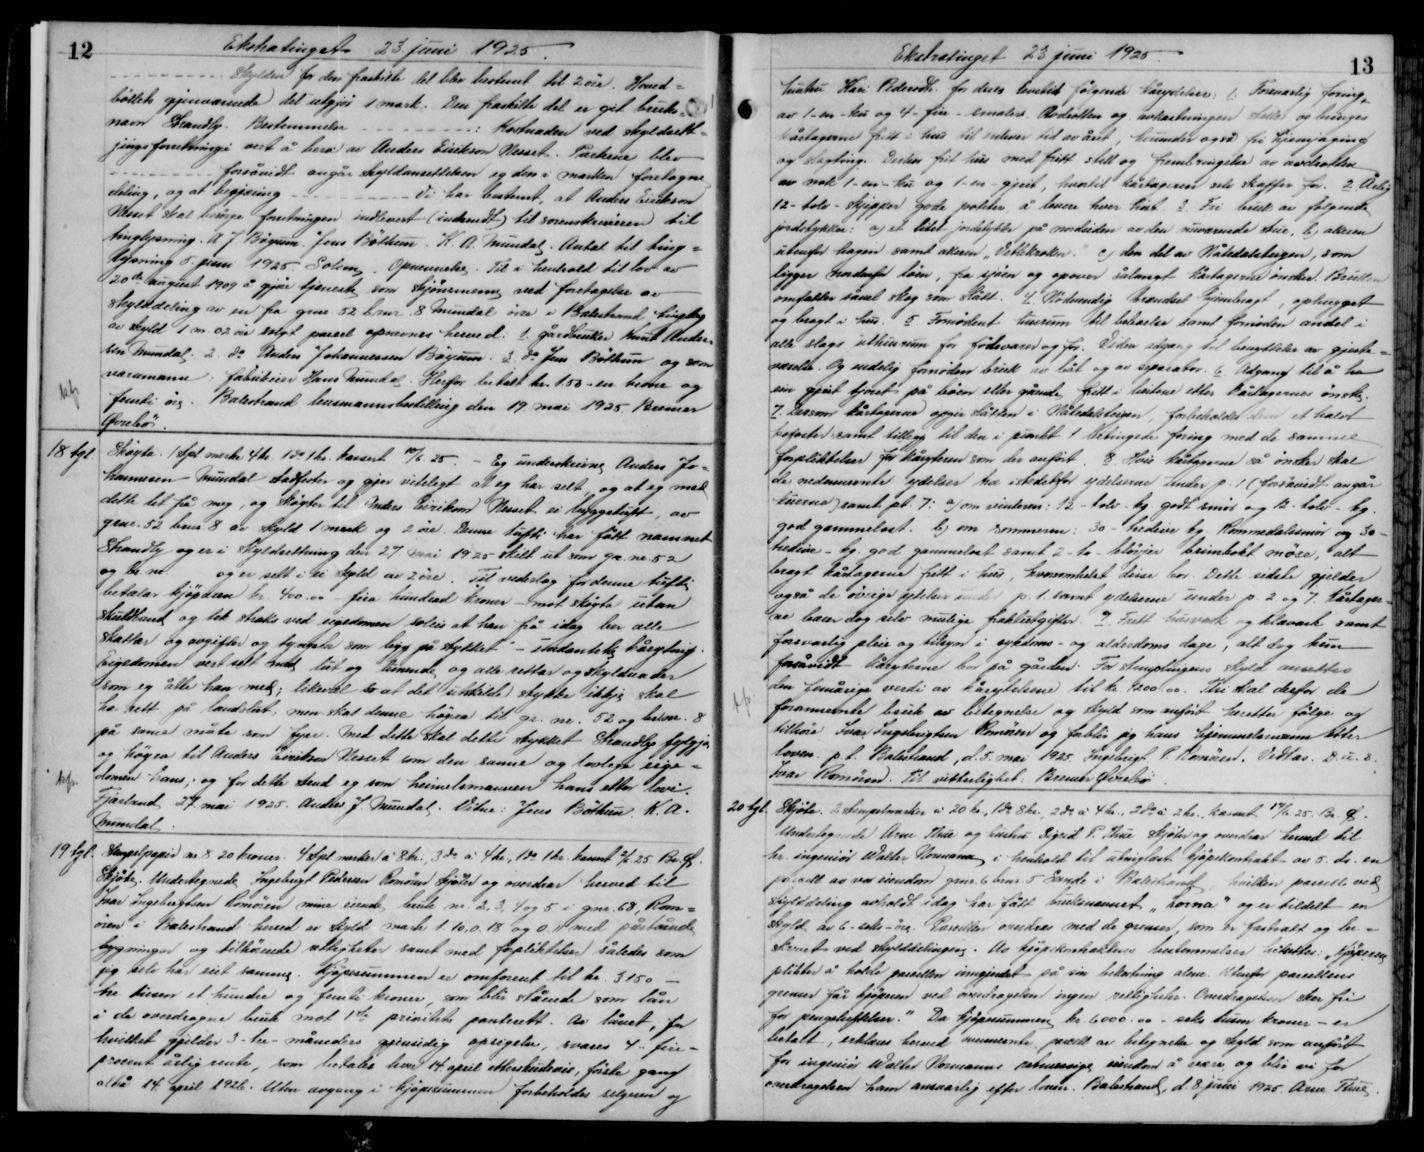 12
Ekstratinget 23 juni 1925.
Skylden for den fraskilte del blev bestemt til 2 öre. Hoved-
bölets gjenværende del utgjör 1 mark. Den fraskilte del er git bruks-
navn Strandly. Bestemmelse : Kostnaden ved skylddel-
ingsforretningi vert å bera av Anders Eirikson Nesset. Partene blev
forsåvidt angår skyldansettelsen og den i marken foretagne
deling, og at begjæring Vi har bestemt, at Anders Eirikson
Nesset skal besörge forretningen indlevert (indsendt) til sorenskriveren til
tinglysning. A J Böyum. Jens Böthun. K. A. Mundal. Antat til ting-
lysning 5. juni 1925 Solem. Opnevnelse. Til i henhold til lov av
20de august 1909 å gjöre tjeneste som skjönsmenn ved foretagelse av
skylddeling av en fra gnr. 52 brnr. 8 Mundal öra i Balestrand tinglag
av skyld 1 m. 02 öre solgt parsel opnevnes herved: 1. gårdbruker Knut Anders-
sen Mundal. 2. do Anders Johannessen Böyum. 3. do Jens Böthun og som
varamann: fabrikeier Hans Mundal. Herfor betalt kr. 1.50 - en krone og
femti öre. Balestrand lensmannsbestilling den 19. mai 1925. Bremer
Övrebö.
18 tgl Sköyte. 1 stpl merke 4 kr 1 do 1 kr. kassert 10/6 25. - Eg underskrivne Anders Jo-
hannessen Mundal stadfester og gjer viteleget at eg har selt, og at eg med
dette let frå meg, og sköyter til Anders Eirikson Nesset ei byggetuft, av
gnr. 52 brnr 8 av skyld 1 mark og 2 öre. Denne tufti har fått namnet
Strandly og er i skylddeltning den 27 mai 1925 skilt ut som ga. nr. 52
og br. nr og er sett i ei skyld av 2 öre. Til vederlag for denne tufti
betalar kjöparen kr. 400.00 - fire hundrad kroner - mot sköyte utan
skuldband og tek straks ved eigedomen soleis at han frå idag ber alle
skattar og avgifter og tyngslor som ligg på stykket - undanteke kårytingi.
Eigedomen vert selt med lut og lunende, og alle rettar og skyldnader
som eg åtte han med; likevel so at det utskilde stykket ikkje skal
ha rett på landslut, men skal denne höyra til gr. nr. 52 og brknr. 8
på same måte som fyrr. Med dette skal dette stykket Strandly fylgja
og höyra til Anders Eirikson Nesset som den sanne og lovlege eige-
domen hans; og for dette stend eg som heimelsmannen hans etter lovi.
Fjærland 27 mai 1925. Anders J Mundal. Vitne: Jens Böthun. K. A.
Mundal.
19 tgl. Stempelpapir av 8 20 kroner. 4 stpl merker à 8 kr. 3 do à 4 kr, 1 do 1 kr. kassert 3/6 25. Br Ö.
Skjöte. Undertegnede Ingebrigt Pedersen Romören skjöter og overdrar herved til
Ivar Ingebrigtsen Romören mine eiende bruk nr. 2. 3, 4 og 5 i gnr. 68, Rom-
ören i Balestrand herred av skyld mark 1.10, 0.18 og 0.11 med påstående
bygninger og tilhörende rettigheter samt med forpliktelser således som
jeg selv har eiet samme. Kjöpesummen er omforenet til kr. 3150 -
tre tusen et hundre og femti kroner, som blir stående som lån
i de overdragne bruk mot 1ste prioritets panterett. Av lånet, for
hvilket gjelder 3 - tre - måneders gjensidig opsigelse, svares 4 - fire -
procent årlig rente, som betales hver 14 april etterskuddsvis, förste gang
altså 14 april 1926. Uten avgang i kjöpesummen forbeholdes selgeren og
13
Ekstratinget 23 juni 1925.
hustru Kari Pedersdt. for deres levetid fölgende kårytelser: 1. Forsvarlig foring
av 1 - en - ku og 4 - fire - smaler. Avdrotten og avkastningen stelles og bringes
kårtagerne fritt i hus til enhver tid av året, herunder også fri hjemjaging
og slagting. Desten frit hus med fritt stell og frembringelse av avdrotten
av nok 1 - en - ku og 1 - en - gjeit, hvortil kårtageren selv skaffer for. 2. Årlig
12 - tolv - skjepper gode poteter, å levere hver höst. 3. Fri bruk av fölgende
jordstykker: a) et litet jordstykke på nordsiden av den nuværende stue, b) akeren
utenfor hagen samt akeren „Vetlekroken" c) den del av Nåledalsteigen, som
ligger nordenfor löen, fra sjöen og opover sålangt kårtagerne önsker. Bruken
omfatter såvel skog som slått. 4. Nödvendig brendsel hjembragt, ophugget
og bragt i hus. 5. Fornödent husrum til beboelse samt fornöden andel i
alle slags uthusrum for födevarer og for. Videre adgang til benyttelse av gjeste-
værelse. Og endelig fornöden bruk av båt og av separator. 6. Adgang til å ha
ein gjeit tjoret på böen eller gående fritt i liidene etter kårtagernes önske.
7. Dersom kårtagerne opgir slåtten i Nåledalsteigen, forbeholdes dem et halvt
kufoster samt tillegg til den i punkt 1 betingede foring med de samme
forpliktelser for kåryteren som der anfört. 8. Hvis kårtagerne så önsker skal
de nedennevnte ydelser tre istedetfor ydelserne under p. 1 (forsåvidt angår
kuerne) samt pt. 7: a) om vinteren: 12 - tolv kg. godt smör og 12 - tolv - kg.
god gammelost. b) om sommeren: 30 - tredive kg. Rommedalssmör og 30 -
tredive - kg. god gammelost samt 2 - to - blöyjer brimkokt möse, alt
bragt kårtagerne fritt i hus, hvorsomhelst disse bor. Dette sidste gjelder
også de övrige ydelser under p. 1. samt ydelserne under p. 2 og 7. Kårtager-
ne bærer dog selv mulige fraktutgifter. 9. Fritt husvask og klævask samt
forsvarlig pleie og tilsyn i sykdoms- og alderdoms dage, alt dog kun
forsåvidt kåryterne bor på gården. For stemplingens skyld ansettes
den femårige verdi av kårytelserne til kr. 4200.00. Thi skal derfor de
forannevnte bruk av betegnelse og skyld som anfört herefter fölge og
tilhöre Ivar Ingebrigtsen Romören og forblir jeg hans hjemmelsmann etter
loven. p. t. Balestrand, d. 5. mai 1925. Ingebrigt P. Romören. Vedtas. D. u. s.
Ivar Romören. Til vitterlighet: Bremer Övrebö.
20 tgl. Skjöte. 2 stempelmerker à 20 kr., 1 do 8 kr, 2 do à 4 kr., 2 do à 2 kr. kassert 17/6 25. Br. Ö.
Undertegnede Arne Thue og hustru Sigrid P. Thue skjöter og overdrar herved til
hr. ingeniör Walter Normann i henhold til utinglest kjöpekontrakt av 5. ds. en
parcell av vor eiendom gnr. 6 bnr. 5 Sande i Balestrand, hvilken parcelle ved
skylddeling avholdt idag har fått bruksnavnet „Torna" og er tildelt en
skyld av 6 - seks - öre. Parcellen overdras med de grenser, som er fastsatt og be-
skrevet ved skylddelingen. Av kjöpekontraktens bestemmelser hitsettes: „Kjöperen
plikter å holde parcellen inngjerdet på sin bekostning alene. Utenfor parcellens
grenser får kjöperen ved overdragelsen ingen rettigheter. Overdragelsen sker fri
for pengeheftelser." Da kjöpesummen kr. 6000.00 - seks tusen kroner - er
betalt, erklæres herved ovennevnte parcell av betegnelse og skyld som anfört
for ingeniör Walter Normanns retmessige eiendom å være og blir vi for
overdragelsen ham ansvarlig efter loven. Balestrand, d. 8. juni 1925. Arne Thue.